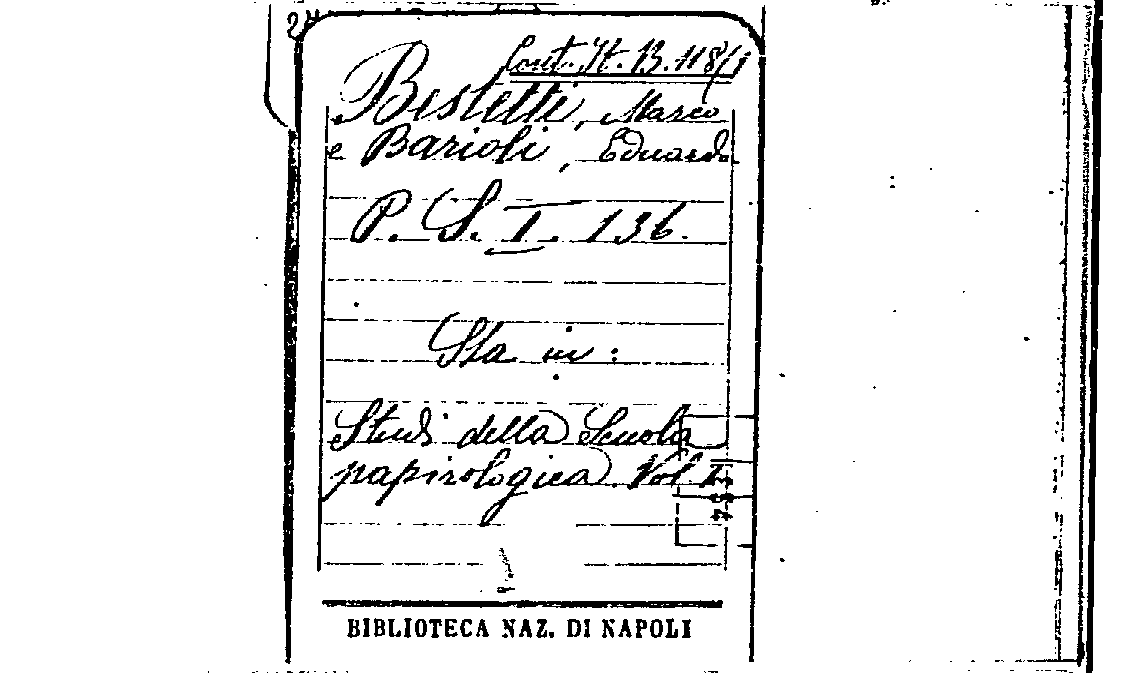 Cont. It. B. 118/1
Bestetti, Marco
e Barioli, Eduardo
P. S. I. 136.
Sta in :
Studi della Scuola
papirologica. Vol I
BIBLIOTECA NAZ. DI NAPOLI